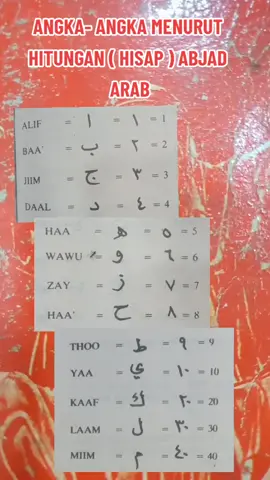 ANGKA- ANGKA MENURUT
HITUNGAN ( HISAP ) ABJAD
ARAB
ALIF = ا = ١ = 1
BAA' = ب = ٢ = 2
JIIM = ج = ٣ = 3
DAAL = د = ٤ = 4
HAA = ه = ٥ = 5
WAWU = و = ٦ = 6
ZAY = ز = ٧ = 7
HAA' = ح = ٨ = 8
THOO = ط = ٩ = 9
YAA = ي = ١٠ = 10
KAAF = ك = ٢٠ = 20
LAAM = ل = ٣٠ = 30
MIIM = م = ٤٠ = 40